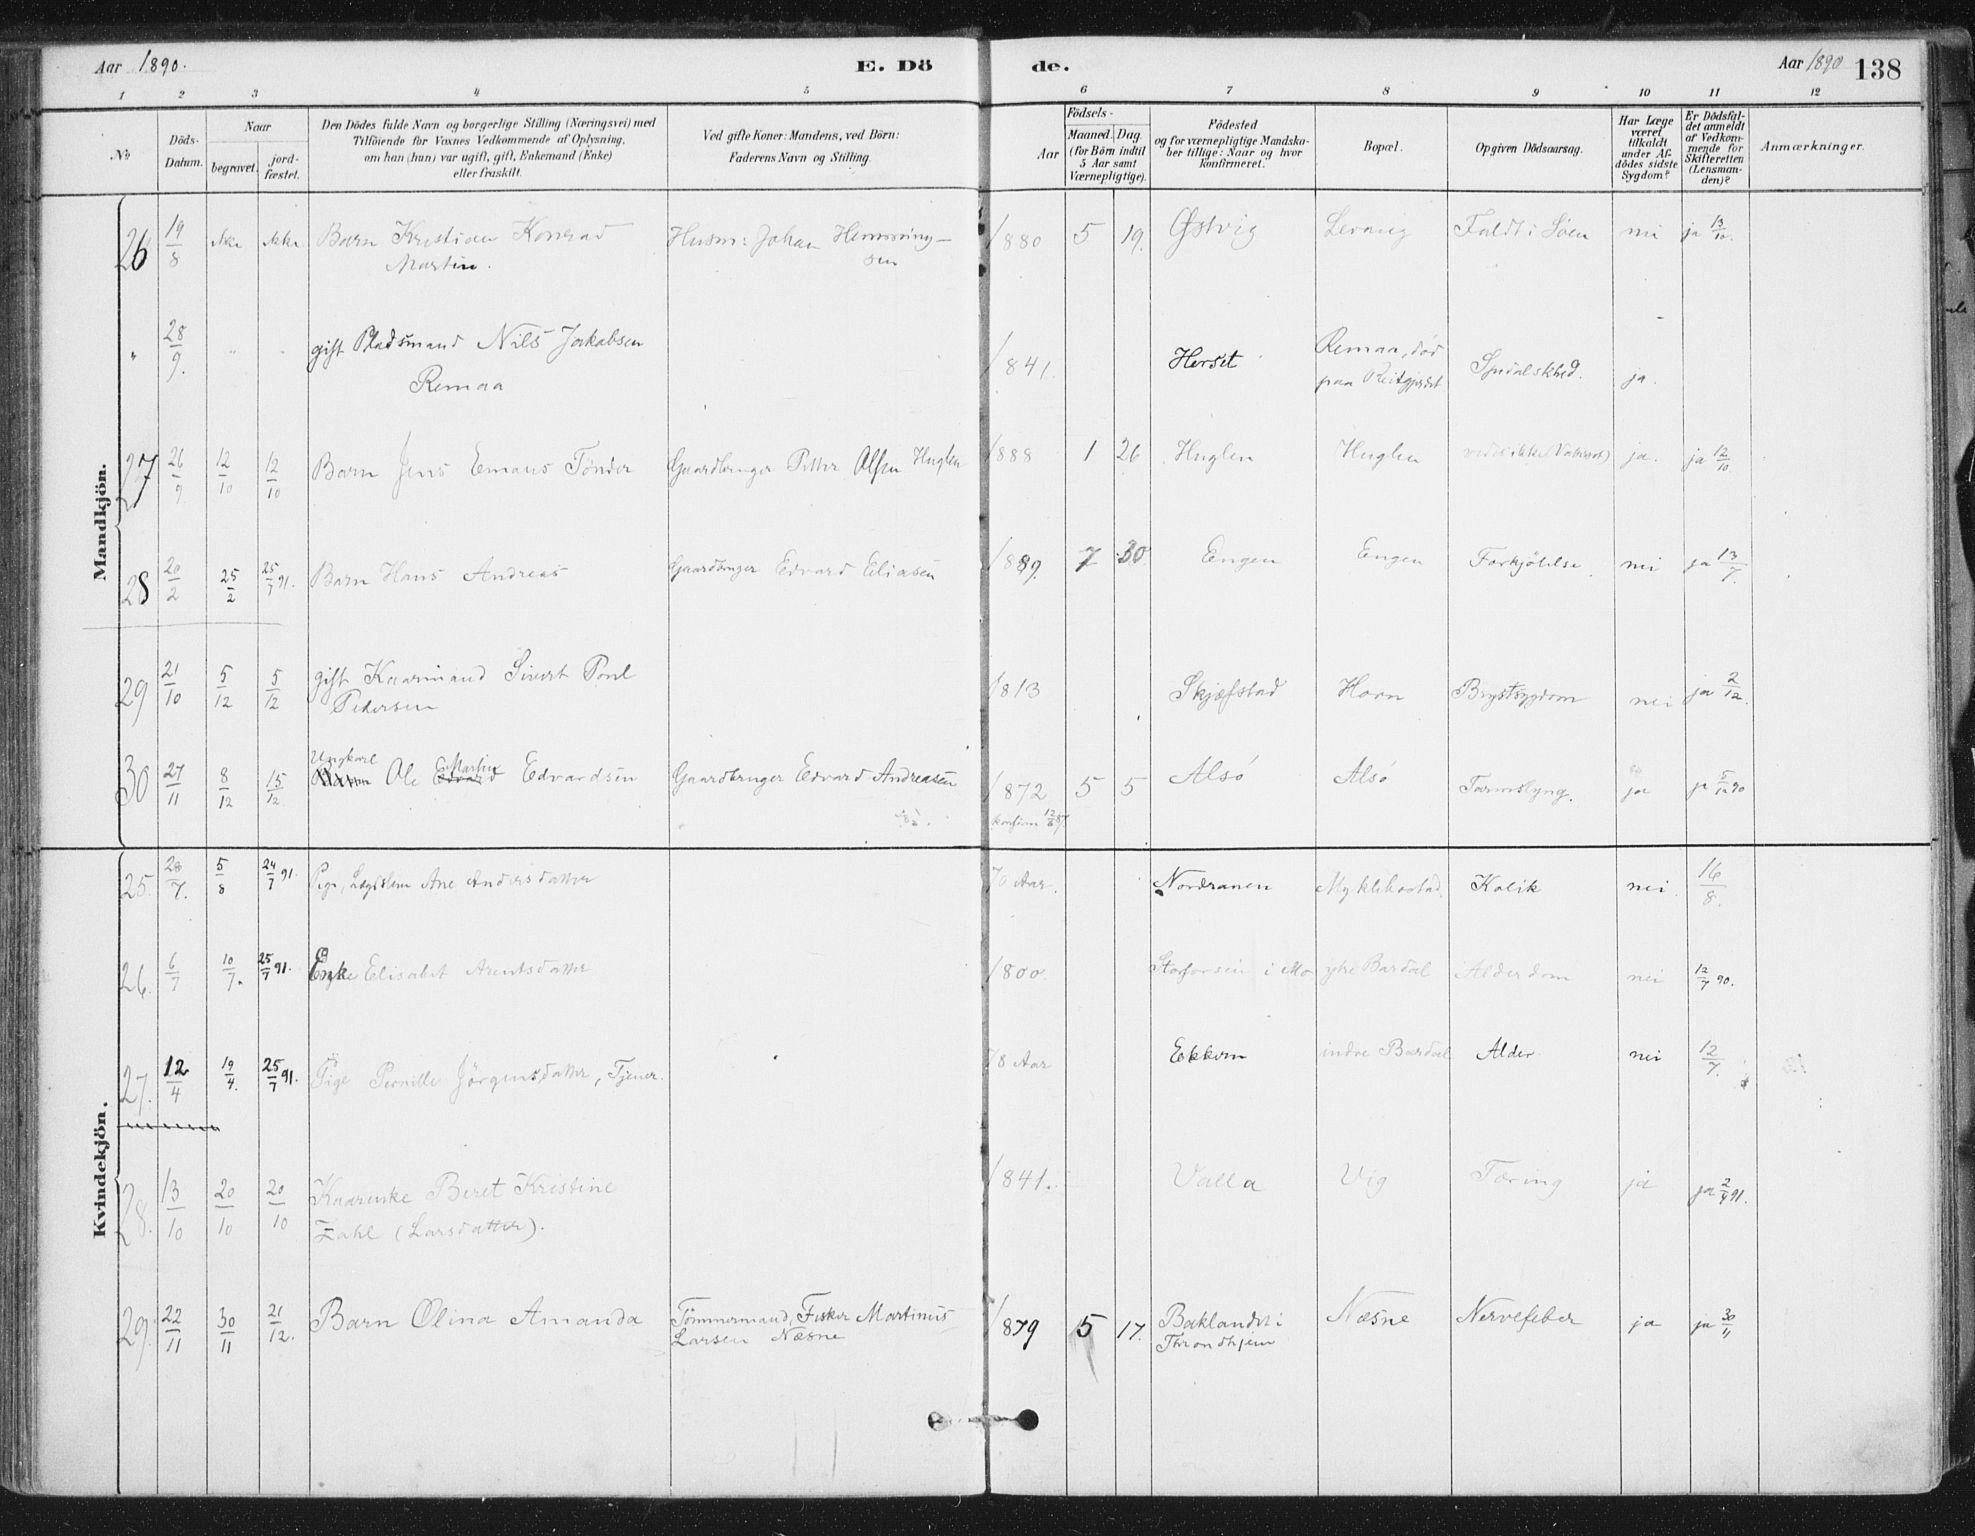 Aar 1890. E. Dö de. Aar 1890 138
1 2 3 4 5 6 7 8 9 10 11 12
No
Döds-Datum.
Naar
begravet.
jord-fæstet.
Den Dödes fulde Navn og borgerlige Stilling (Næringsvei) med
Tilföiende for Voxnes Vedkommende af Oplysning,
om han (hun) var ugift, gift, Enkemand (Enke)
eller fraskilt.
Ved gifte Koner: Mandens, ved Börn:
Faderens Navn og Stilling.
Födsels-
Aar
Maaned. Dag.
(for Börn indtil
5 Aar samt
Værnepligtige).
Födested
og for værnepligtige Mandska-
ber tillige: Naar og hvor
konfirmeret.
Bopæl.
Opgiven Dödsaarsag.
Har Læge
været
tilkaldt
under Af-
dödes sidste
Sygdom?
Er Dödsfal-
det anmeldt
af Vedkom-
mende for
Skifteretten
(Lensman-
den)?
Anmærkninger.
Mandkjön.
26 19/8 ikke ikke Barn Kristian Konrad Husm: Johan Hemming- 1880 5 19. Østvig Levang Faldt i Søen nei ja 13/10.
Martin. sen
" 28/9. " " gift Pladsmand Nils Jakobsen 1841. Herset Remaa, død Spedalskhed. ja.
Remaa paa Reitgjerdet
27 26/9 12/10 12/10 Barn Jens Emaus Tönder Gaardbruger Petter Olsen Huglen 1888 1 26 Huglen Huglen vides ikke ja. ja 12/10.
28 20/2 25/2 25/7 91. Barn Hans Andreas Gaardbruger Edvard Eliasen 1889. 7 30. Engen Engen Forkjölelse. nei ja 13/7.
29 21/10 5/12 5/12 gift Kaarmand Sivert Poul 1813 Skjæfstad Horn Brystsygdom nei ja 2/12.
Petersen
Ungkarl Martin
30 27/11 8/12 15/12. Barn Ole Edvard Edvardsen Gaardbruger Edvard Andreasen 1872 5 5 Alsö Alsö Tarmslyng. ja ja 5/12 90
konfirm 12/6 87.
Kvindekjön.
25. 28/7. 5/8 24/7 91. Pige, Lægdslem Ane Andersdatter 70 Aar. Nordranen Myklebostad. Kolik nei. 16/8.
26. 6/7 10/7. 25/7 91. Enke Elisabet Arentsdatter 1800. Storforsen i Mo ytre Bardal Alderdom nei 12/7 90.
27. 12/4 19/4. 25/7 91. Pige Pernille Jörgensdatter, Tjener. 78 Aar indre Bardal Alder nei 12/7.
28. 13/10 20/10 20/10 Kaarenke Beret Kristine 1841. Valla Vig Tæring ja ja 2/4 91.
Zahl (Larsdatter).
29. 22/11 30/11 21/12. Barn Olina Amanda Tömmermand, Fisker Martinus 1879 5 17. Baklandet i Næsne Nervefeber ja ja 30/11
Larsen Næsne Throndhjem